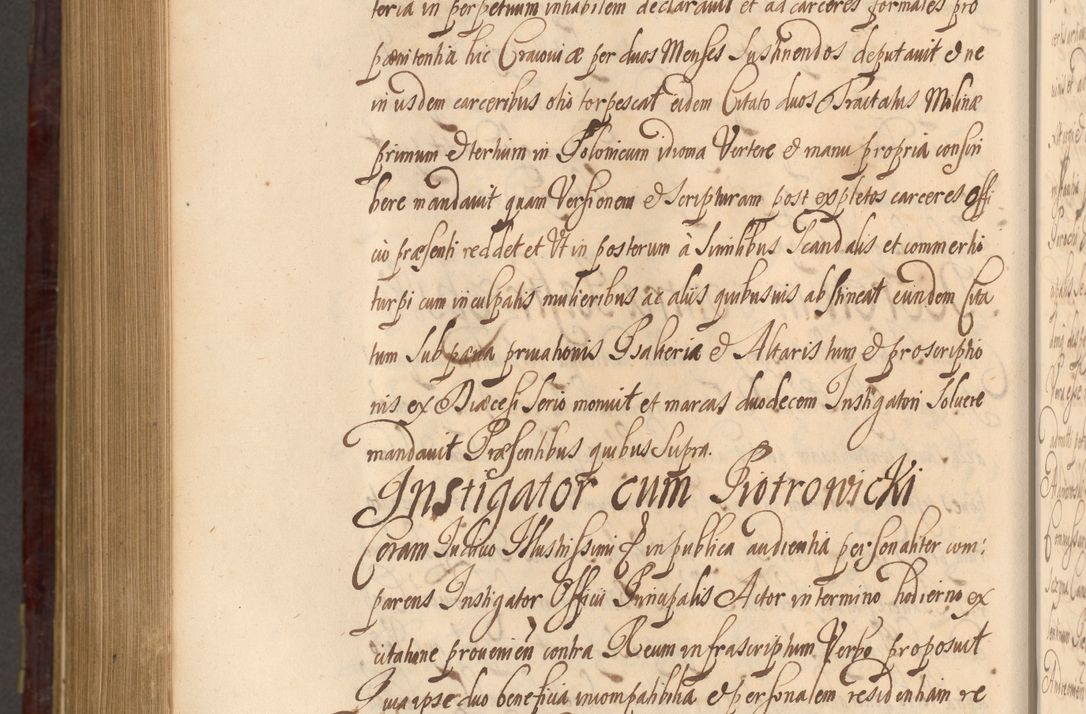 teria in perpetuum inhabilem declarauit et ad carceres formales pro
pænitentia hic Cracoviæ per duos Menses Sustinendos deputauit & ne
in ijsdem carceribus otio torpescat eidem Citato duos Tractatus Molinæ
primum & tertium in Polonicum idioma Vertere & manu propria conscri
bere mandauit quam Versionem & Scripturam post expletos carceres Offi
cio præsenti reddet et Vt in posterum à Similibus Scandalis et commertio
turpi cum inculpatis mulieribus ac alijs quibusuis abstineat eundem Cita
tum Sub pæna priuationis Psalteriæ & Altaris tum & proscriptio
nis ex Diæcesi Serio monuit et marcas duodecem Instigatori Soluere
mandauit Præsentibus quibus Supra.
Instigator cum Piotrowicki
Coram Judicio Illustrissimi & in publica audientia personaliter com:
parens Instigator Officij Principalis Actor in termino hodierno ex
citatione provenien contra Reum infrascriptum Verbo proposuit
Quia ipse duo beneficia incompatibilia & personalem residentiam re